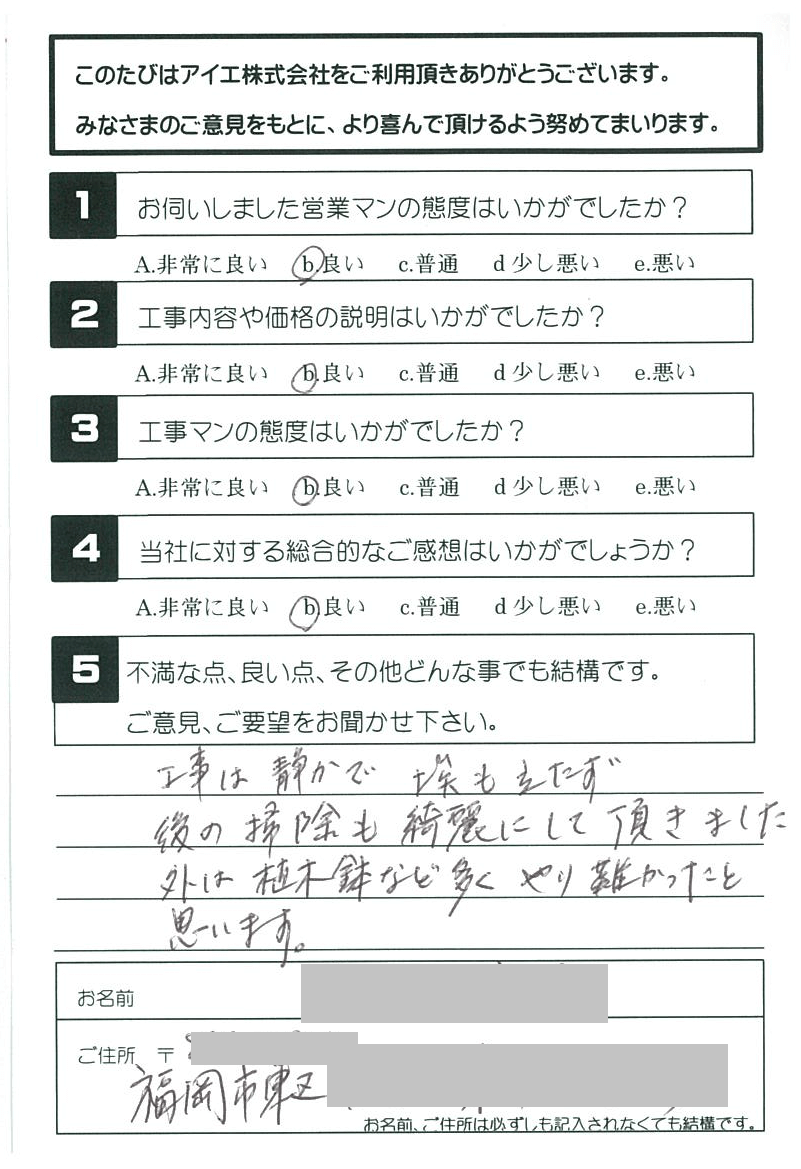 このたびはアイエ株式会社をご利用頂きありがとうございます。
みなさまのご意見をもとに、より喜んで頂けるよう努めてまいります。
1 お伺いしました営業マンの態度はいかがでしたか？
A.非常に良い b.良い c.普通 d少し悪い e.悪い
2 工事内容や価格の説明はいかがでしたか？
A.非常に良い b.良い c.普通 d少し悪い e.悪い
3 工事マンの態度はいかがでしたか？
A.非常に良い b.良い c.普通 d少し悪い e.悪い
4 当社に対する総合的なご感想はいかがでしょうか？
A.非常に良い b.良い c.普通 d少し悪い e.悪い
5 不満な点、良い点、その他どんな事でも結構です。
ご意見、ご要望をお聞かせ下さい。
工事は静かで 埃も立たず
後の掃除も綺麗にして頂きました
外は植木鉢など多く やり難かったこと
思います。
お名前
ご住所 〒
福岡市東区
お名前、ご住所は必ずしも記入されなくても結構です。